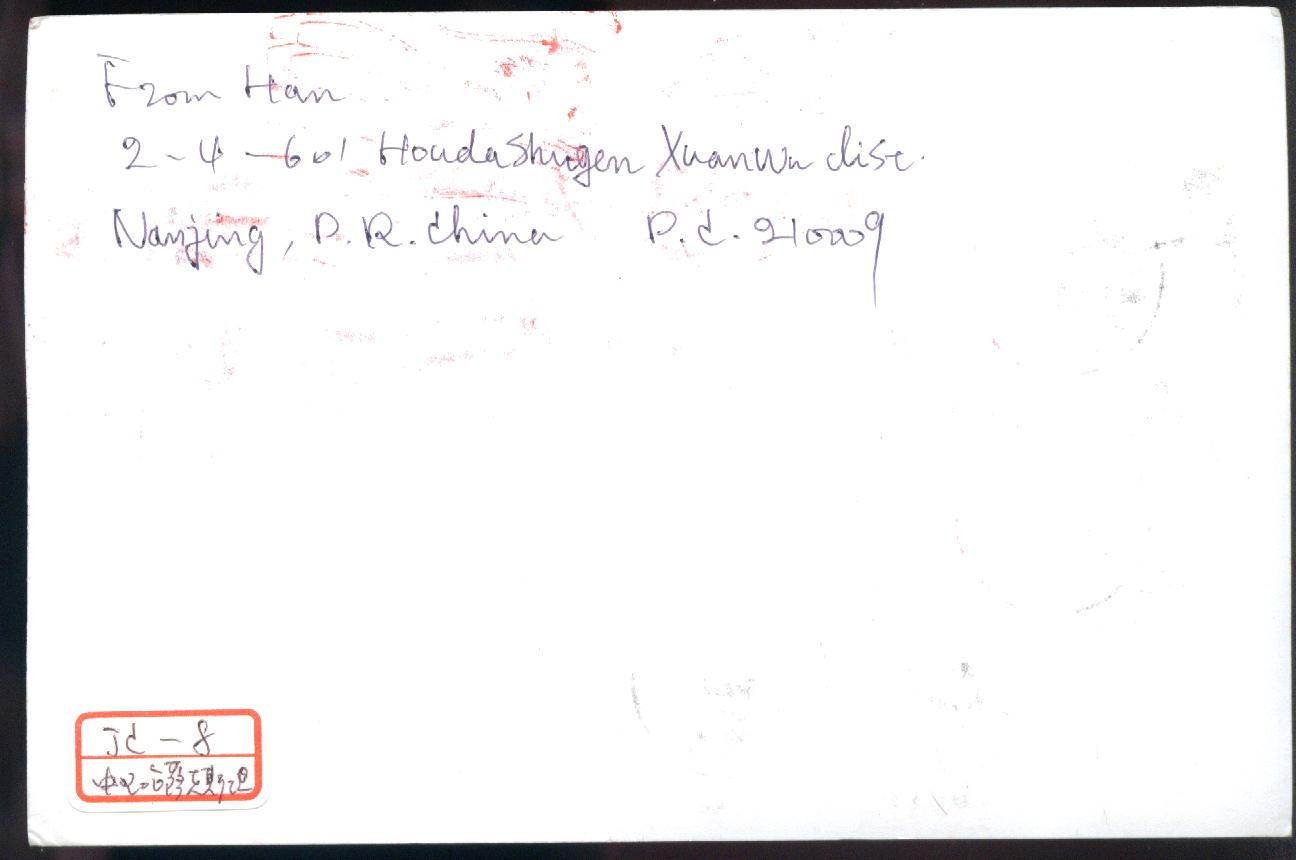 From Han
2-4-601 Houdashugen Xuanwu dist.
Nanjing, P.R. China P.C. 210009
JC-8